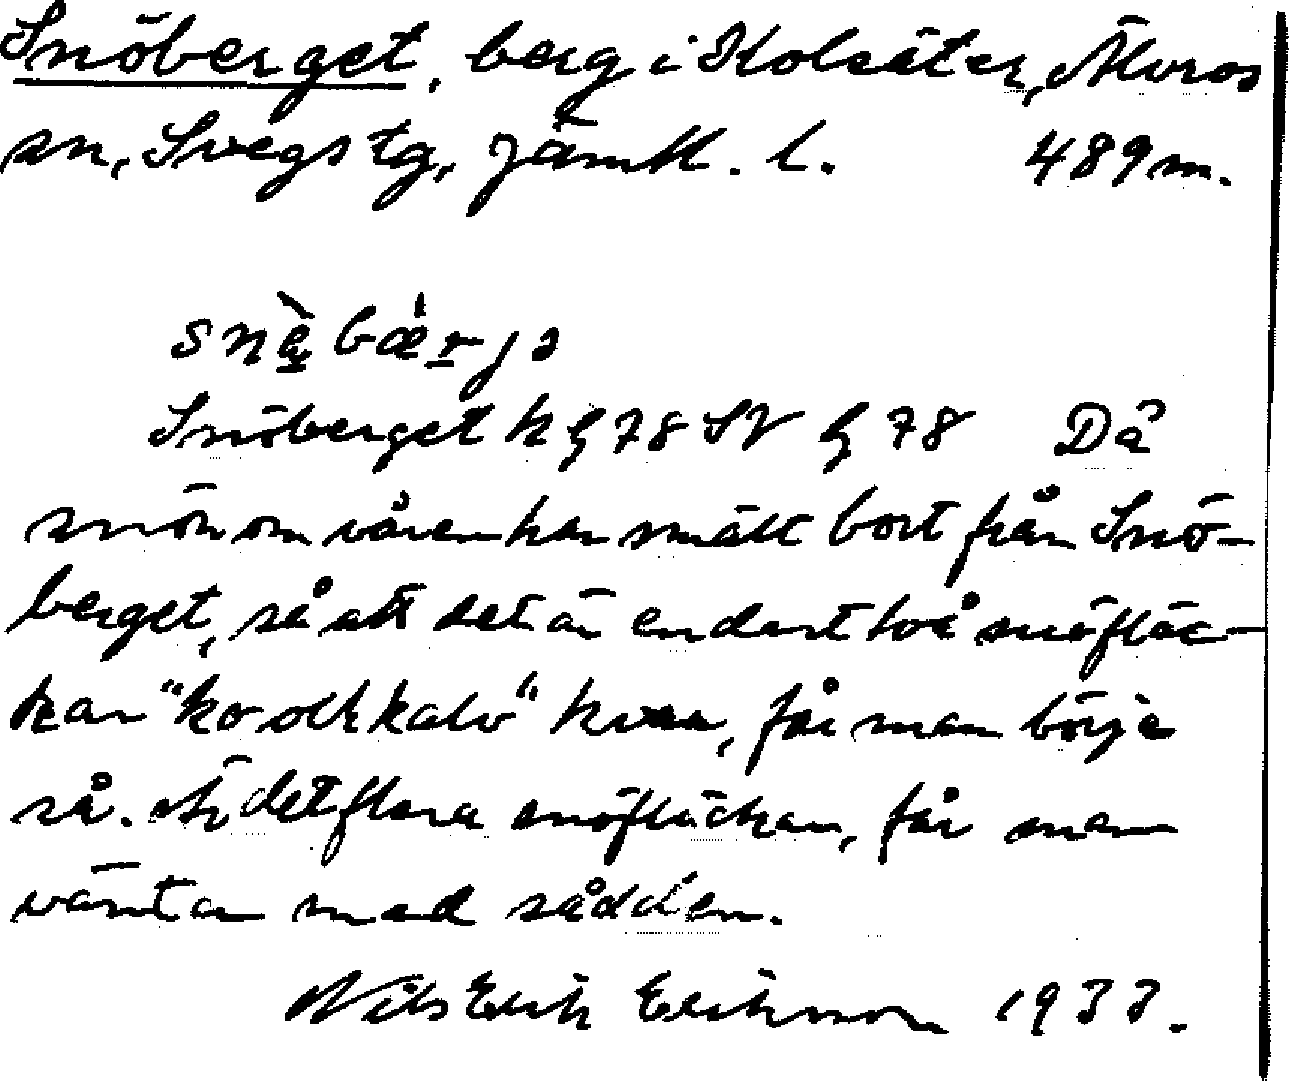 Snöberget, berg i Kolsäter, Älvros
sn, Svegs tg, Jämtl. l. 489 m.
snè̱bæ̀ṟjə
Snöberget k G 78 SV G 78 Då
snön om våren har smält bort från Snö-
berget, så att det är endast två snöfläc-
kar "ko och kalv" kvar, får man börja
så. Är det flera snöfläckar, får man
vänta med sådden.
Nils Erik Eriksson 1933.